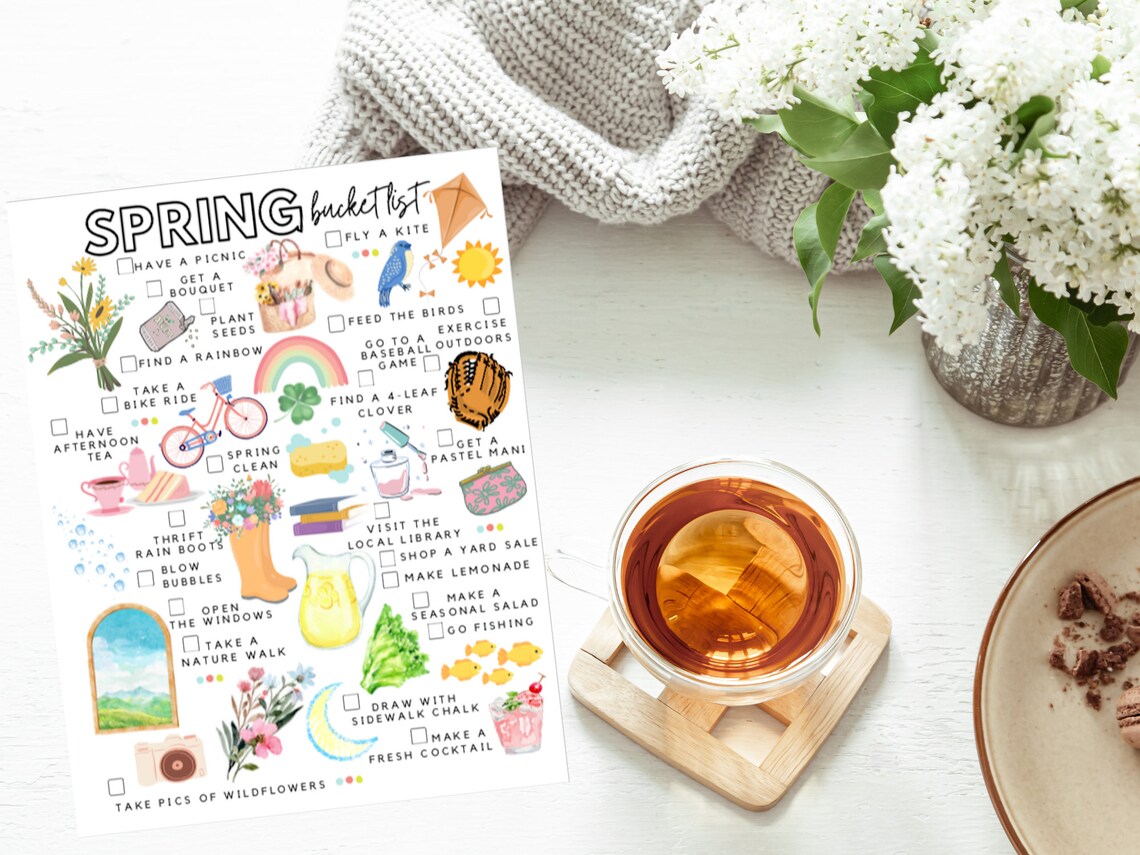 SPRING bucket list
FLY A KITE
HAVE A PICNIC
GET A
BOUQUET
PLANT
SEEDS
FEED THE BIRDS
EXERCISE
OUTDOORS
FIND A RAINBOW
GO TO A
BASEBALL
GAME
TAKE A
BIKE RIDE
FIND A 4-LEAF
CLOVER
HAVE
AFTERNOON
TEA
SPRING
CLEAN
GET A
PASTEL MANI
THRIFT
RAIN BOOTS
VISIT THE
LOCAL LIBRARY
SHOP A YARD SALE
BLOW
BUBBLES
MAKE LEMONADE
OPEN
THE WINDOWS
MAKE A
SEASONAL SALAD
GO FISHING
TAKE A
NATURE WALK
DRAW WITH
SIDEWALK CHALK
MAKE A
FRESH COCKTAIL
TAKE PICS OF WILDFLOWERS